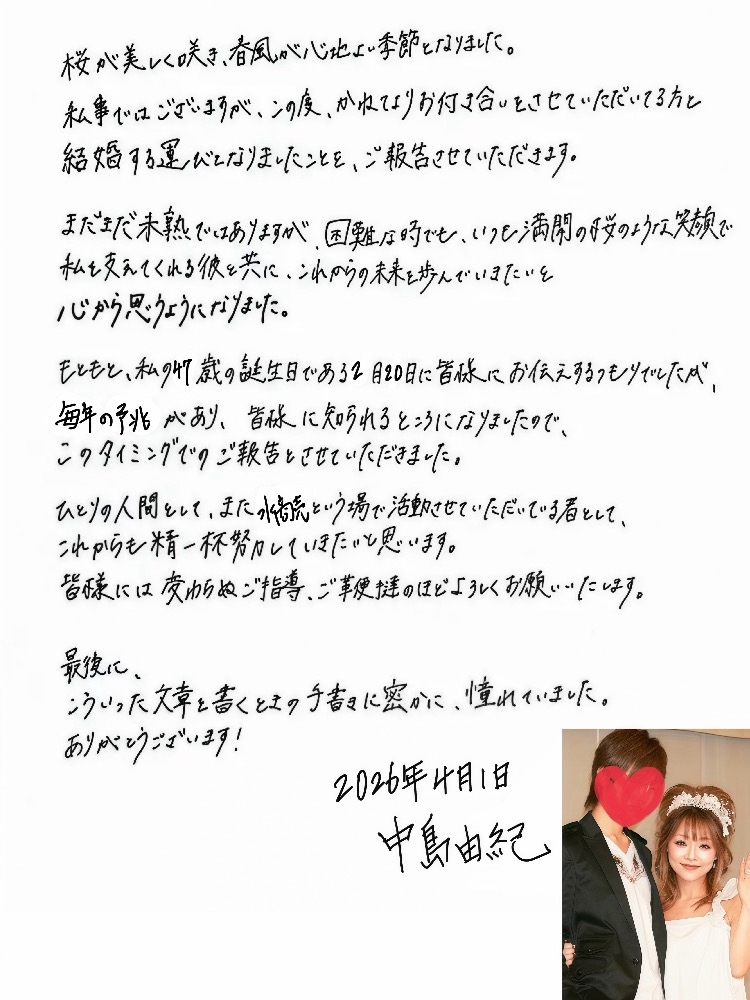 桜が美しく咲き、春風が心地よい季節となりました。
私事ではございますが、この度、かねてよりお付き合いをさせていただいてる方と
結婚する運びとなりましたことを、ご報告させていただきます。
まだまだ未熟ではありますが、困難な時でも、いつも満開の桜のような笑顔で
私を支えてくれる彼と共に、これからの未来を歩んでいきたいと
心から思うようになりました。
もともと、私の47歳の誕生日である2月20日に皆様にお伝えするつもりでしたが、
毎年の予兆があり、皆様に知られるところになりましたので、
このタイミングでのご報告とさせていただきました。
ひとりの人間として、またという場で活動させていただいでる者として、
これからも精一杯努力していきたいと思います。
皆様には変わらぬご指導、ご鞭撻のほどよろしくお願いいたします。
最後に、
こういった文章を書くときの手書きに密かに、憧れていました。
ありがとうございます!
2026年4月1日
中島由紀